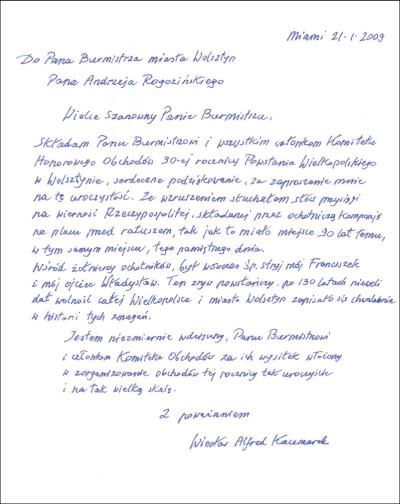 Miami 21-1-2009
Do Pana Burmistrza miasta Wolsztyn
Pana Andrzeja Rogozińskiego
Wielce Szanowny Panie Burmistrzu,
Składam Panu Burmistrzowi i wszystkim członkom Komitetu
Honorowego Obchodów 90-ej rocznicy Powstania Wielkopolskiego
w Wolsztynie, serdeczne podziękowanie, za zaproszenie mnie
na tę uroczystość. Ze wzruszeniem słuchałem słów przysięgi
na wierność Rzeczypospolitej, składanej przez ochotniczą kompanię
na placu przed ratuszem, tak jak to miało miejsce 90 lat temu,
w tym samym miejscu, tego pamiętnego dnia.
Wśród żołnierzy ochotników, był wówczas śp. stryj mój Franciszek
i mój ojciec Władysław. Ten zryw powstańczy, po 130 latach niewoli
dał wolność całej Wielkopolsce i miasto Wolsztyn zapisało się chwalebnie
w historii tych zmagań.
Jestem niezmiernie wdzięczny, Panu Burmistrzowi
i członkom Komitetu Obchodów za ich wysiłek włożony
w zorganizowanie obchodów tej rocznicy tak uroczyście
i na tak wielką skalę.
Z poważaniem
Wiesław Alfred Kaczmarek